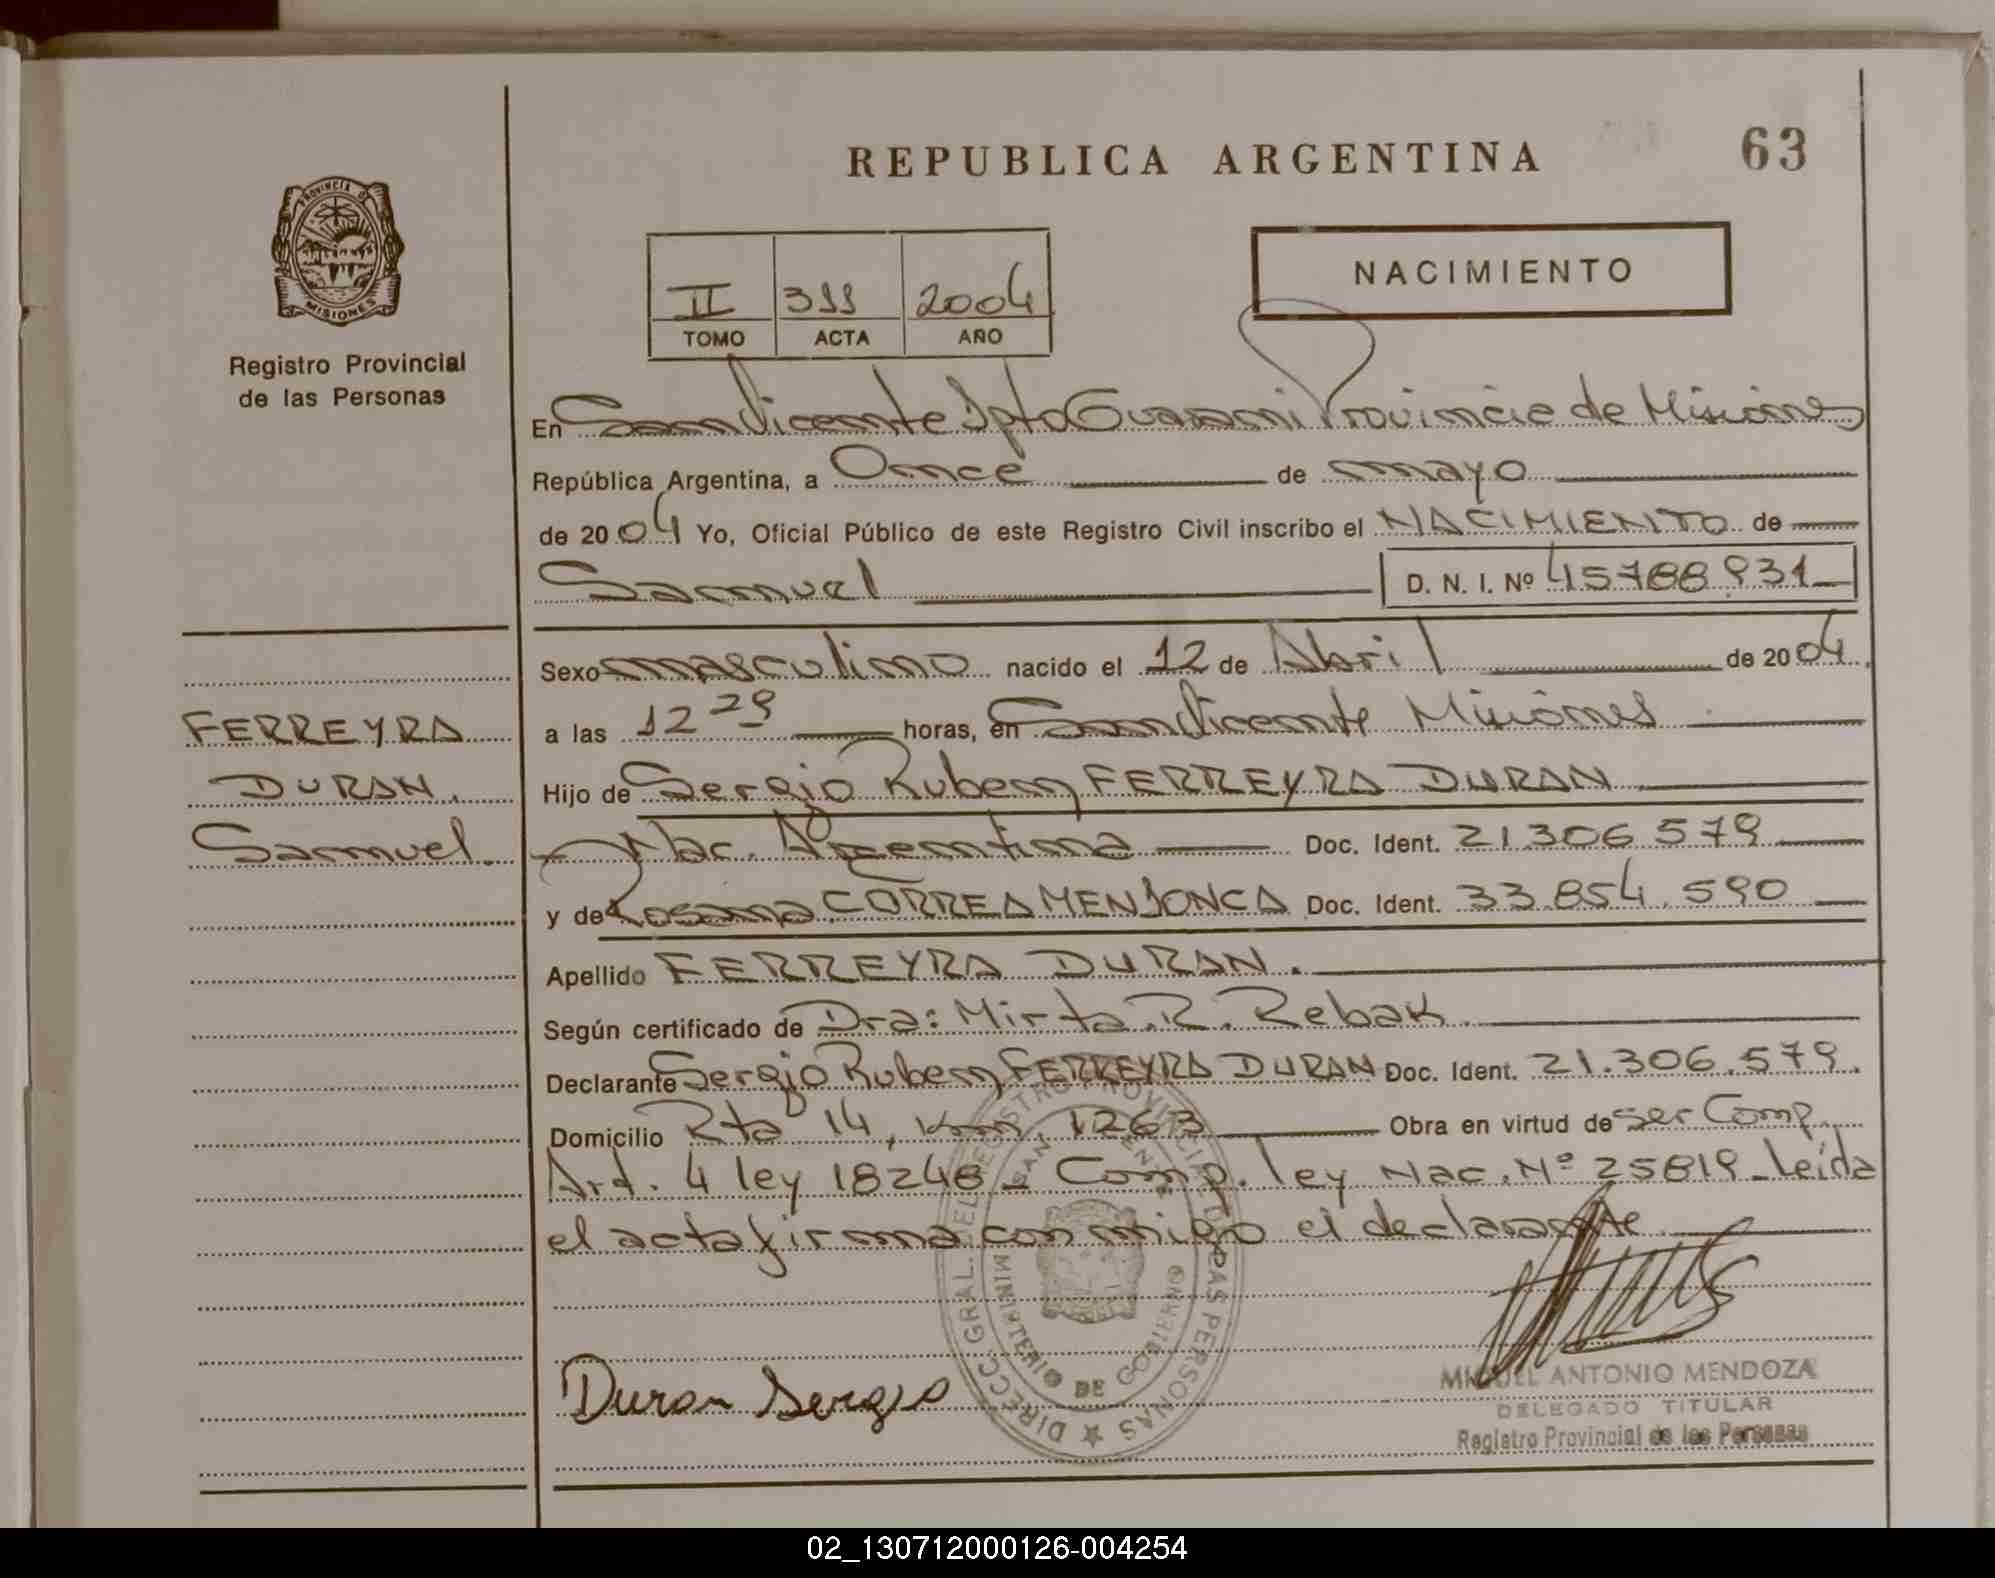 REPUBLICA ARGENTINA
63
PROVINCIA DE
MISIONES
Registro Provincial
de las Personas
II 311 2004
TOMO ACTA AÑO
NACIMIENTO
En San Vicente Dpto Guarani Provincia de Misiones
República Argentina, a Once de mayo
de 2004 Yo, Oficial Público de este Registro Civil inscribo el NACIMIENTO de
Samuel D. N. I. Nº 45788931
Sexo masculino nacido el 12 de Abril de 2004
a las 12 29 horas, en San Vicente Misiones
Hijo de Sergio Ruben FERREYRA DURAN
Nac. Argentina Doc. Ident. 21.306.579
y de Rosana CORREA MENDONCA Doc. Ident. 33.854.590
Apellido FERREYRA DURAN.
Según certificado de Dra: Mirta. R. Rebak
Declarante Sergio Ruben FERREYRA DURAN Doc. Ident. 21.306.579.
Domicilio Rta 14, Km. 1263 Obra en virtud de ser Comp.
Art. 4 ley 18248 - Comp. ley Nac. Nº 25819 - Leída
el acta firma con migo el declarante
FERREYRA
DURAN.
Samuel.
Duran Sergio
DIRECC. GRAL. DEL REGISTRO PROVINCIAL DE LAS PERSONAS
MINISTERIO DE GOBIERNO
MIGUEL ANTONIO MENDOZA
DELEGADO TITULAR
Registro Provincial de las Personas
02_130712000126-004254